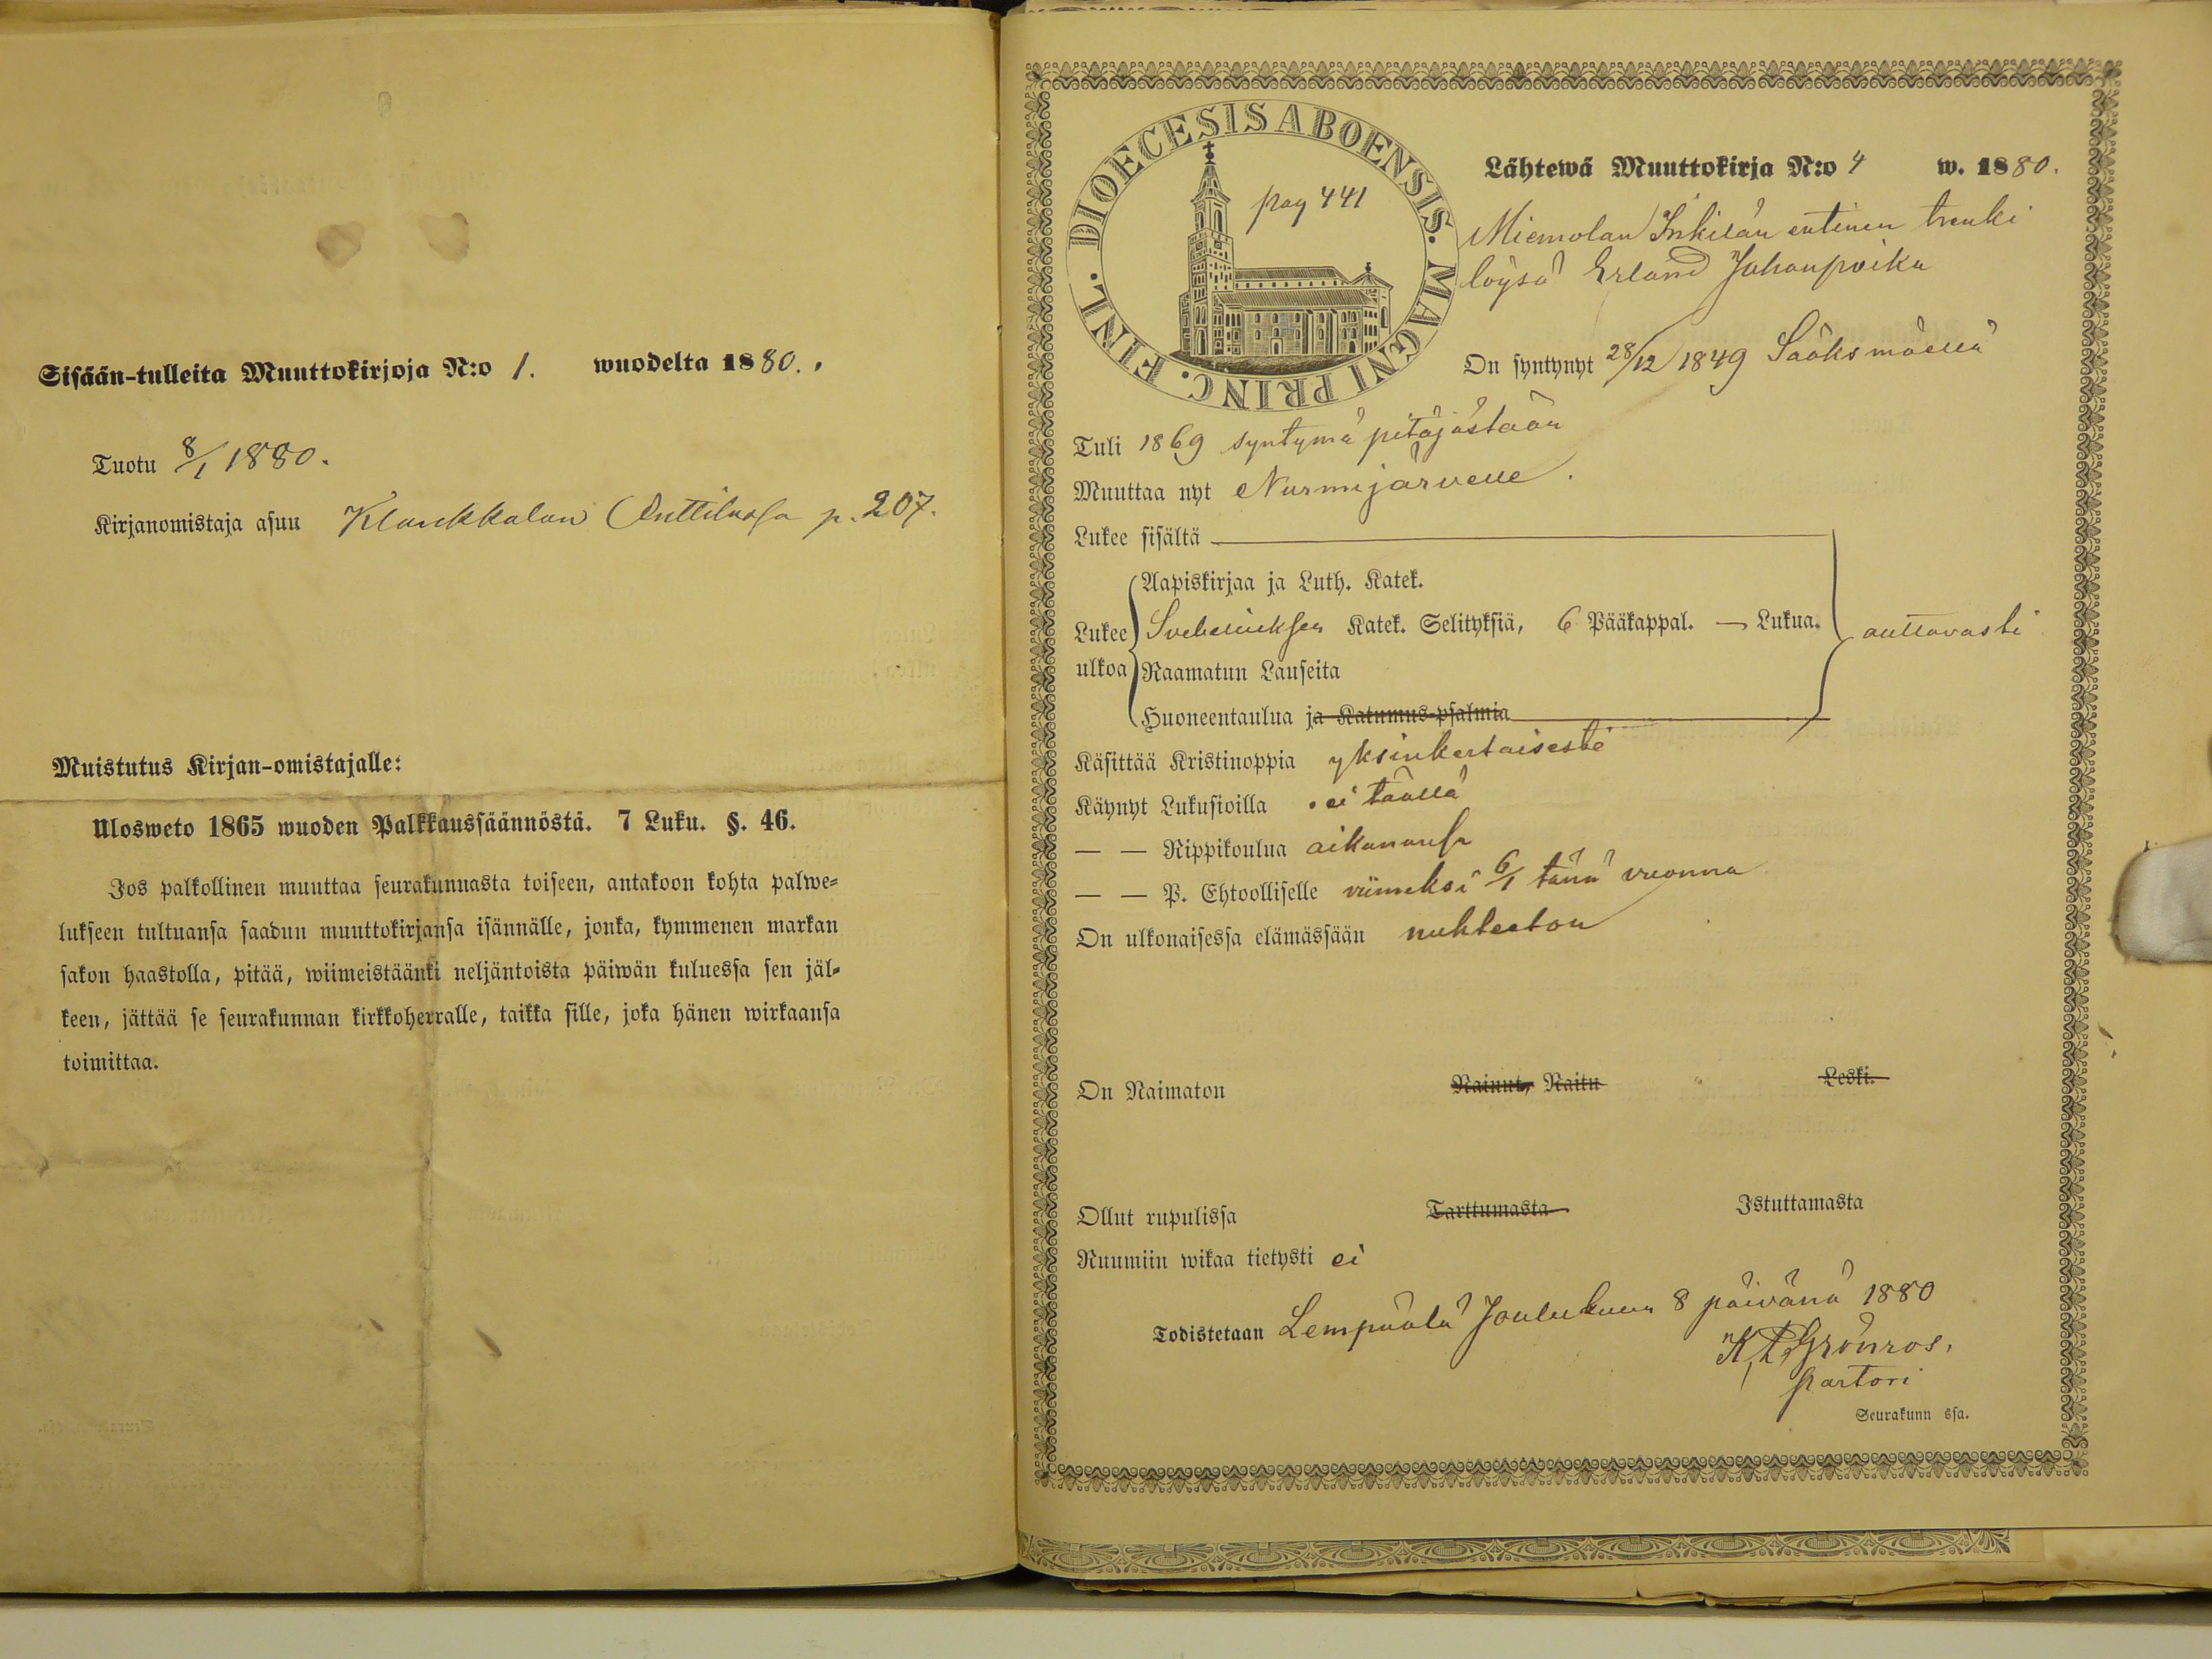 Sisään-tulleita Muuttokirjoja N:o 1. wuodelta 1880.
Tuotu 8/1 1880.
Kirjanomistaja asuu Klaukkalan Anttilassa p. 207.
Muistutus Kirjan-omistajalle:
Ulosweto 1865 wuoden Palkkaussäännöstä. 7 Luku. §. 46.
Jos palkollinen muuttaa seurakunnasta toiseen, antakoon kohta palwe-
lukseen tultuansa saadun muuttokirjansa isännälle, jonka, kymmenen markan
sakon haastolla, pitää, wiimeistäänki neljäntoista päiwän kuluessa sen jäl-
keen, jättää se seurakunnan kirkkoherralle, taikka sille, joka hänen wirkaansa
toimittaa.
DIOECESIS ABOENSIS. MAGNI PRINC. FINL.
pag 441
Lähtewä Muuttokirja N:o 4 w. 1880.
Miemolan Inkilän entinen trenki
löysä Erland Juhanpoika
On syntynyt 28/12 1849 Sääksmäellä
Tuli 1869 syntymä pitäjästään
Muuttaa nyt Nurmijärvelle.
Lukee sisältä
Aapiskirjaa ja Luth. Katek.
Lukee ulkoa Svebeliuksen Katek. Selityksiä, 6 Pääkappal. — Lukua. auttavasti
Raamatun Lauseita
Huoneentaulua ja Katumus-psalmia
Käsittää Kristinoppia yksinkertaisesti
Käynyt Lukusioilla ei täällä
— — Rippikoulua aikanansa
— — P. Ehtoolliselle viimeksi 6/1 tänä vuonna
On ulkonaisessa elämässään nuhteeton
On Naimaton Nainut, Naitu Leski.
Ollut rupulissa Tarttumasta Istuttamasta
Ruumiin wikaa tietysti ei
Todistetaan Lempäälä Joulukuun 8 päivänä 1880
Grönros.
pastori
Seurakunn ssa.